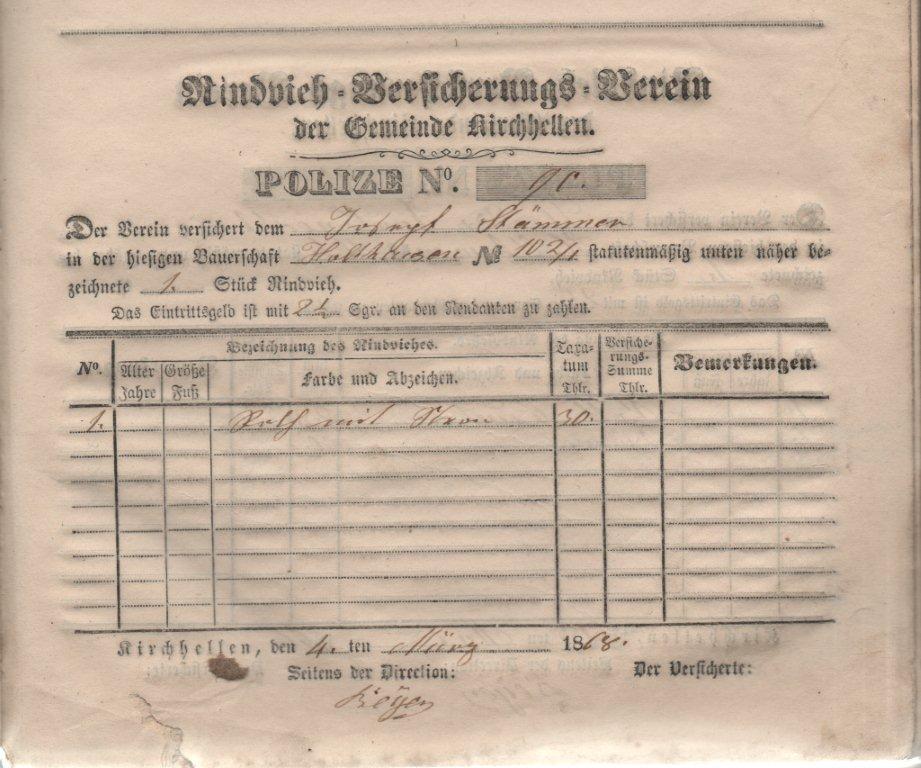 Rindvieh-Versicherungs-Verein
der Gemeinde Kirchhellen.
POLIZE No.
Der Verein versichert dem Joseph Stämmer
in der hiesigen Bauerschaft Holthausen № 102/1 statutenmäßig unten näher be-
zeichnete 1. Stück Rindvieh.
Das Eintrittsgeld ist mit 2½ Sgr. an den Rendanten zu zahlen.
No. Bezeichnung des Rindviehes. Taxa-tum Thlr. Versiche-rungs-Summe Thlr. Bemerkungen.
Alter Jahre Größe Fuß Farbe und Abzeichen.
1. Roth mit Stern 30.
Kirchhellen, den 4. ten März 1868.
Seitens der Direction: Der Versicherte: